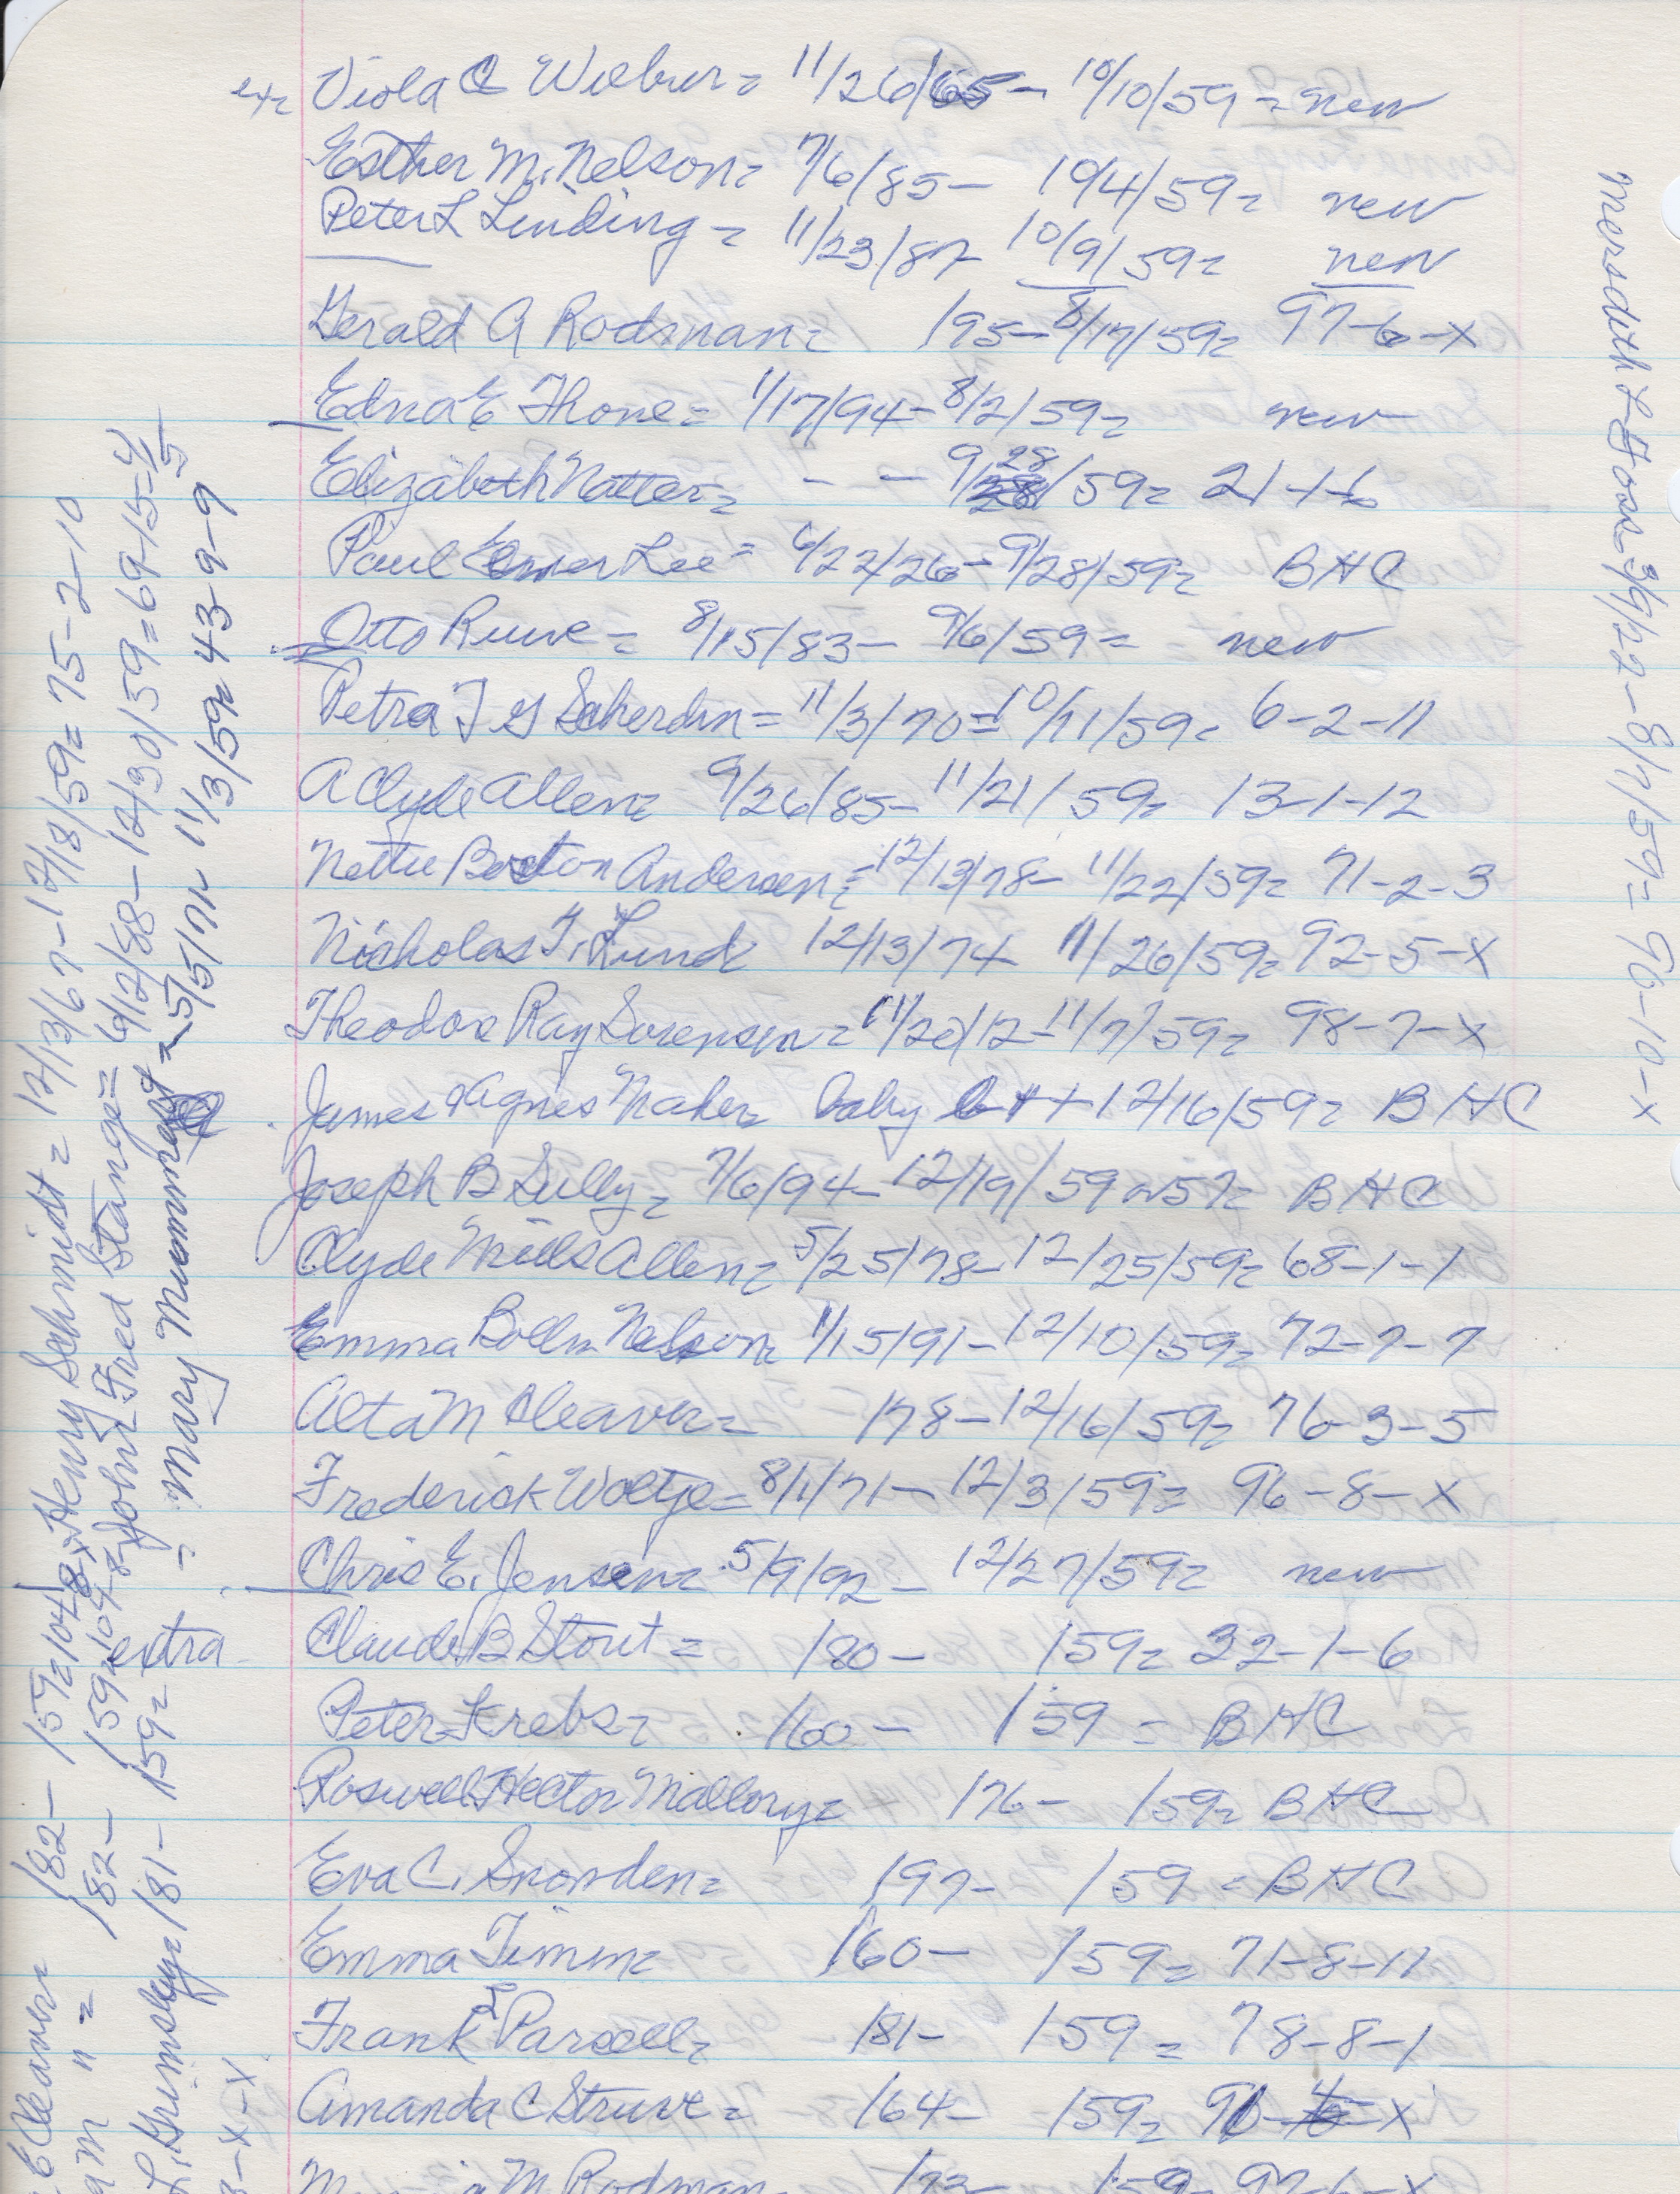 ex= Viola C Wilbur= 11/26/65- 10/10/59= new
Esther M. Nelson= 7/6/85- 10/4/59= new
Peter L Linding= 11/23/87- 10/9/59= new
Gerald A Rodman= /95- 8/17/59= 97-6-x
Edna E Thone= 1/17/94- 8/2/59= new
Elizabeth Natter= - - 9/28/59= 21-1-6
Paul Elmer Lee= 6/22/26- 9/28/59= BHC
Otto Ruwe= 8/15/83- 9/6/59= new
Petra T G Scherdin= 11/3/70= 10/11/59= 6-2-11
A Clyde Allen= 9/26/85- 11/21/59= 13-1-12
Nettie Boston Andersen= 12/13/78- 11/22/59= 71-2-3
Nicholas T. Lund 12/13/74- 11/26/59= 92-5-x
Theodore Ray Sorensen= 11/20/12- 11/7/59= 98-7-x
James & Agnes Maher= baby 12/16/59= BHC
Joseph B Sully= 7/6/94- 12/19/59 or 57= BHC
Clyde Mills Allen= 5/25/78- 12/25/59= 68-1-1
Emma Bolln Nelson= 1/15/91- 12/10/59= 72-7-7
Alta M Cleaver= /78- 12/16/59= 76-3-5
Frederick Woltje= 8/1/71- 12/3/59= 96-8-x
Chris E. Jensen= 5/9/92- 12/27/59= new
Claude B Stout= /80- /59= 32-1-6
Peter Krebs= /60- /59= BHC
Roswell Hector Mallory= /76- /59= BHC
Eva C. Snowden= /97- /59= BHC
Emma Timm= /60- /59= 71-8-11
Frank I Parcell= /81- /59= 78-8-1
Amanda C Struve= /64- /59= x
M Rodman /73- /59= 97-6-x
Henry Schmidt= 12/13/67- 12/18/59= 75-2-10
John Fred Stange= 6/12/88- 12/30/59= 69-15-4/5
= Mary = 5/5/71= 11/3/59= 43-9-9
Cleaver /82- /59=104-8-x
" = /82- /59=104-8-x
L. Grimsley= /81- /59= extra
-x-x
Mersdith L Hose= 3/9/22- 8/7/59= 96-10-x